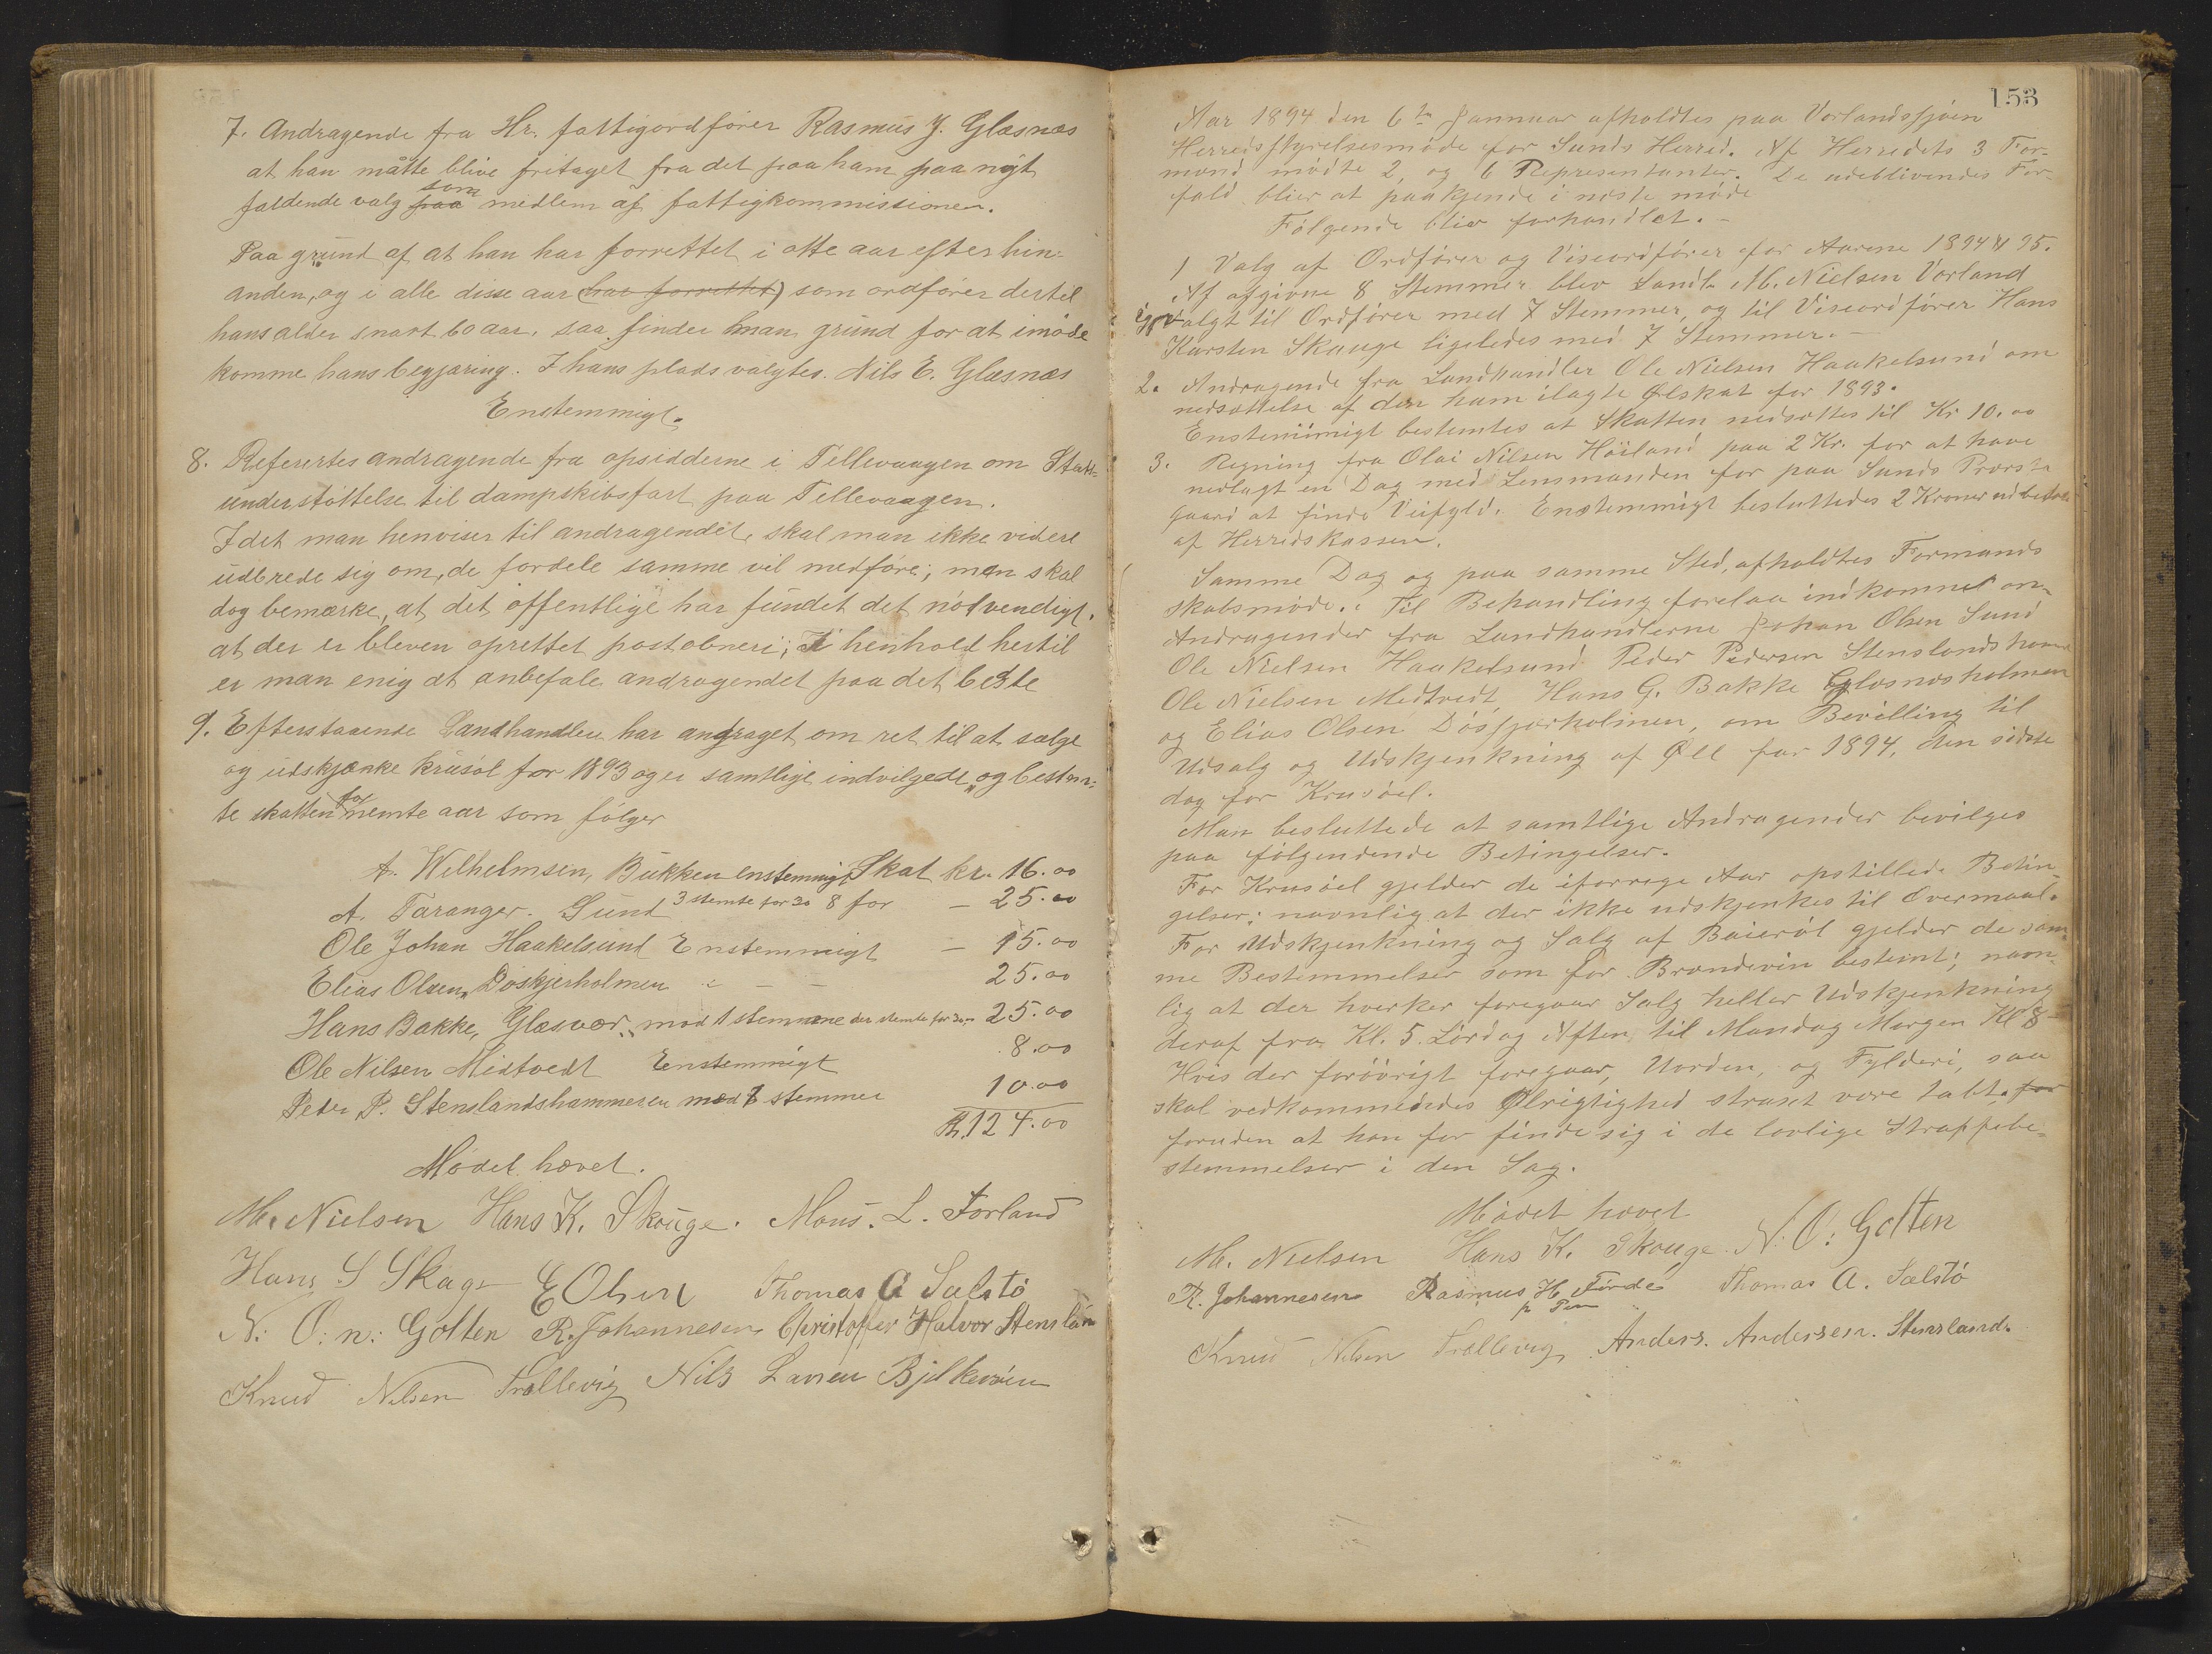 7. Andragende fra Hr. fattigordfører Rasmus J. Glæsnæs
at han måtte blive fritaget fra det paa ham paa nÿt
faldende valg paa som medlem af fattigkommissionen.
Paa grund af at han har forrettet i otte aar efter hin-
anden, og i alle disse aar (har forrettet) som ordfører dertil
hans alder snart 60 aar, saa finder man grund for at imøde
komme hans begjæring. I hans plads valgtes. Nils E. Glæsnæs
Enstemmigt.
8. Referertes andragende fra opsidderne i Tellevaagen om Stats-
understøttelse til dampskibsfart paa Tellevaagen.
Idet man henviser til andragendet, skal man ikke videre
udbrede sig om, de fordele samme vil medføre; men skal
dog bemærke, at det offentlige har fundet det nødvendigt,
at der er bleven oprettet postaabneri; I henhold hertil
er man enig at anbefale andragendet paa det beste
9. Efterstaaende Landhandlere har andraget om ret til at sælge
og udskjænke krusøl for 1893 og er samtlige indvilgede, og bestem-
te skatten for nemte aar som følger
A. Wilhelmsen, Bukken enstemmigt Skat kr. 16.00
A. Taranger. Sund 3 stemte for 30 8 for — 25.00
Ole Johan Haakelsund Enstemmigt — 15.00
Elias Olsen, Døskjerholmen — — 25.00
Hans Bakke, Glæsvær, mod 1 stemme der stemte for 30,- 25.00
Ole Nilsen Midtvedt Enstemmigt 8.00
Peder P. Stenslandshammeren mod 1 stemmer 10.00
Kr. 124.00
Mødet hævet.
M. Nielsen Hans K. Skauge. Mons. L. Forland
Hans S Skage E Olsen Thomas A Sælstø
N: O: n: Golten R. Johannesen Christoffer Halvor Stensland
Knud Nilsen Trællevig Nils Larsen Bjelkerøien
153
Aar 1894 den 6te Januar afholdtes paa Vorlandssjøen
Herredsstyrelsesmøde for Sunds Herred. Af Herredets 3 For-
mænd mødte 2, og 6 Representanter. De udeblivendes For-
fald blier at paakjende i næste møde
Følgende blier forhandlet. —
1 Valg af Ordfører og Viseordfører for Aarene 1894 & 95.
Af afgivne 8 Stemmer blev Landh. M. Nielsen Vorland
valgt til Ordfører med 7 Stemmer, og til Viseordfører Hans
Karsten Skauge ligeledes med 7 Stemmer. —
2. Andragende fra Landhandler Ole Nielsen Haakelsund om
nedsættelse af den ham ilagte Ølskat for 1893.
Enstemmigt bestemtes at Skatten nedsættes til Kr 10.00
3. Regning fra Olai Nilsen Høiland paa 2 Kr. for at have
nedlagt en Dag med Lensmanden for paa Sunds Præste
gaard at finde Veifyld. Enstemmigt besluttedes 2 Kroner udbetale
af Herredskassen.
Samme Dag og paa samme Sted, afholdtes Formands
skabsmøde. Til Behandling forelaa indkomne
Andragender fra Landhandlerne Johan Olsen Sund
Ole Nielsen Haakelsund Peder Pedersen Stenslandshammer
Ole Nielsen Medtvedt, Hans G. Bakke Glæsnæsholmen
og Elias Olsen Døsjærholmen, om Bevilling til
Udsalg og Udskjenkning af Øll for 1894, den sidste
dog for Krusøel.
Man besluttede at samtlige Andragender bevilges
paa følgendende Betingelser.
For Krusøel gjelder de iforrige Aar opstillede Betin-
gelser; navnlig at der ikke udskjenkes til Overmaal.
For Udskjenkning og Salg af Baierøl gjelder de sam-
me Bestemmelser som for Brændevin bestemt; navn-
lig at der hverken foregaar Salg heller Udskjenkning
deraf fra Kl. 5. Lørdag Aften, til Mandag Morgen Kl 8
Hvis der forøvrigt foregaar, Uorden, og Fylderi, saa
skal vedkommendes Ølrigtighed straxt være tabt. for
foruden at han for finde sig i de lovlige Straffebe-
stemmelser i den Sag.
Mødet hævet
M. Nielsen Hans K. Skauge N: O: Golten
R. Johannesen Rasmus H Førde Thomas A. Sælstø
Knud Nilsen Trællevig Anders. Andersen. Stensland.